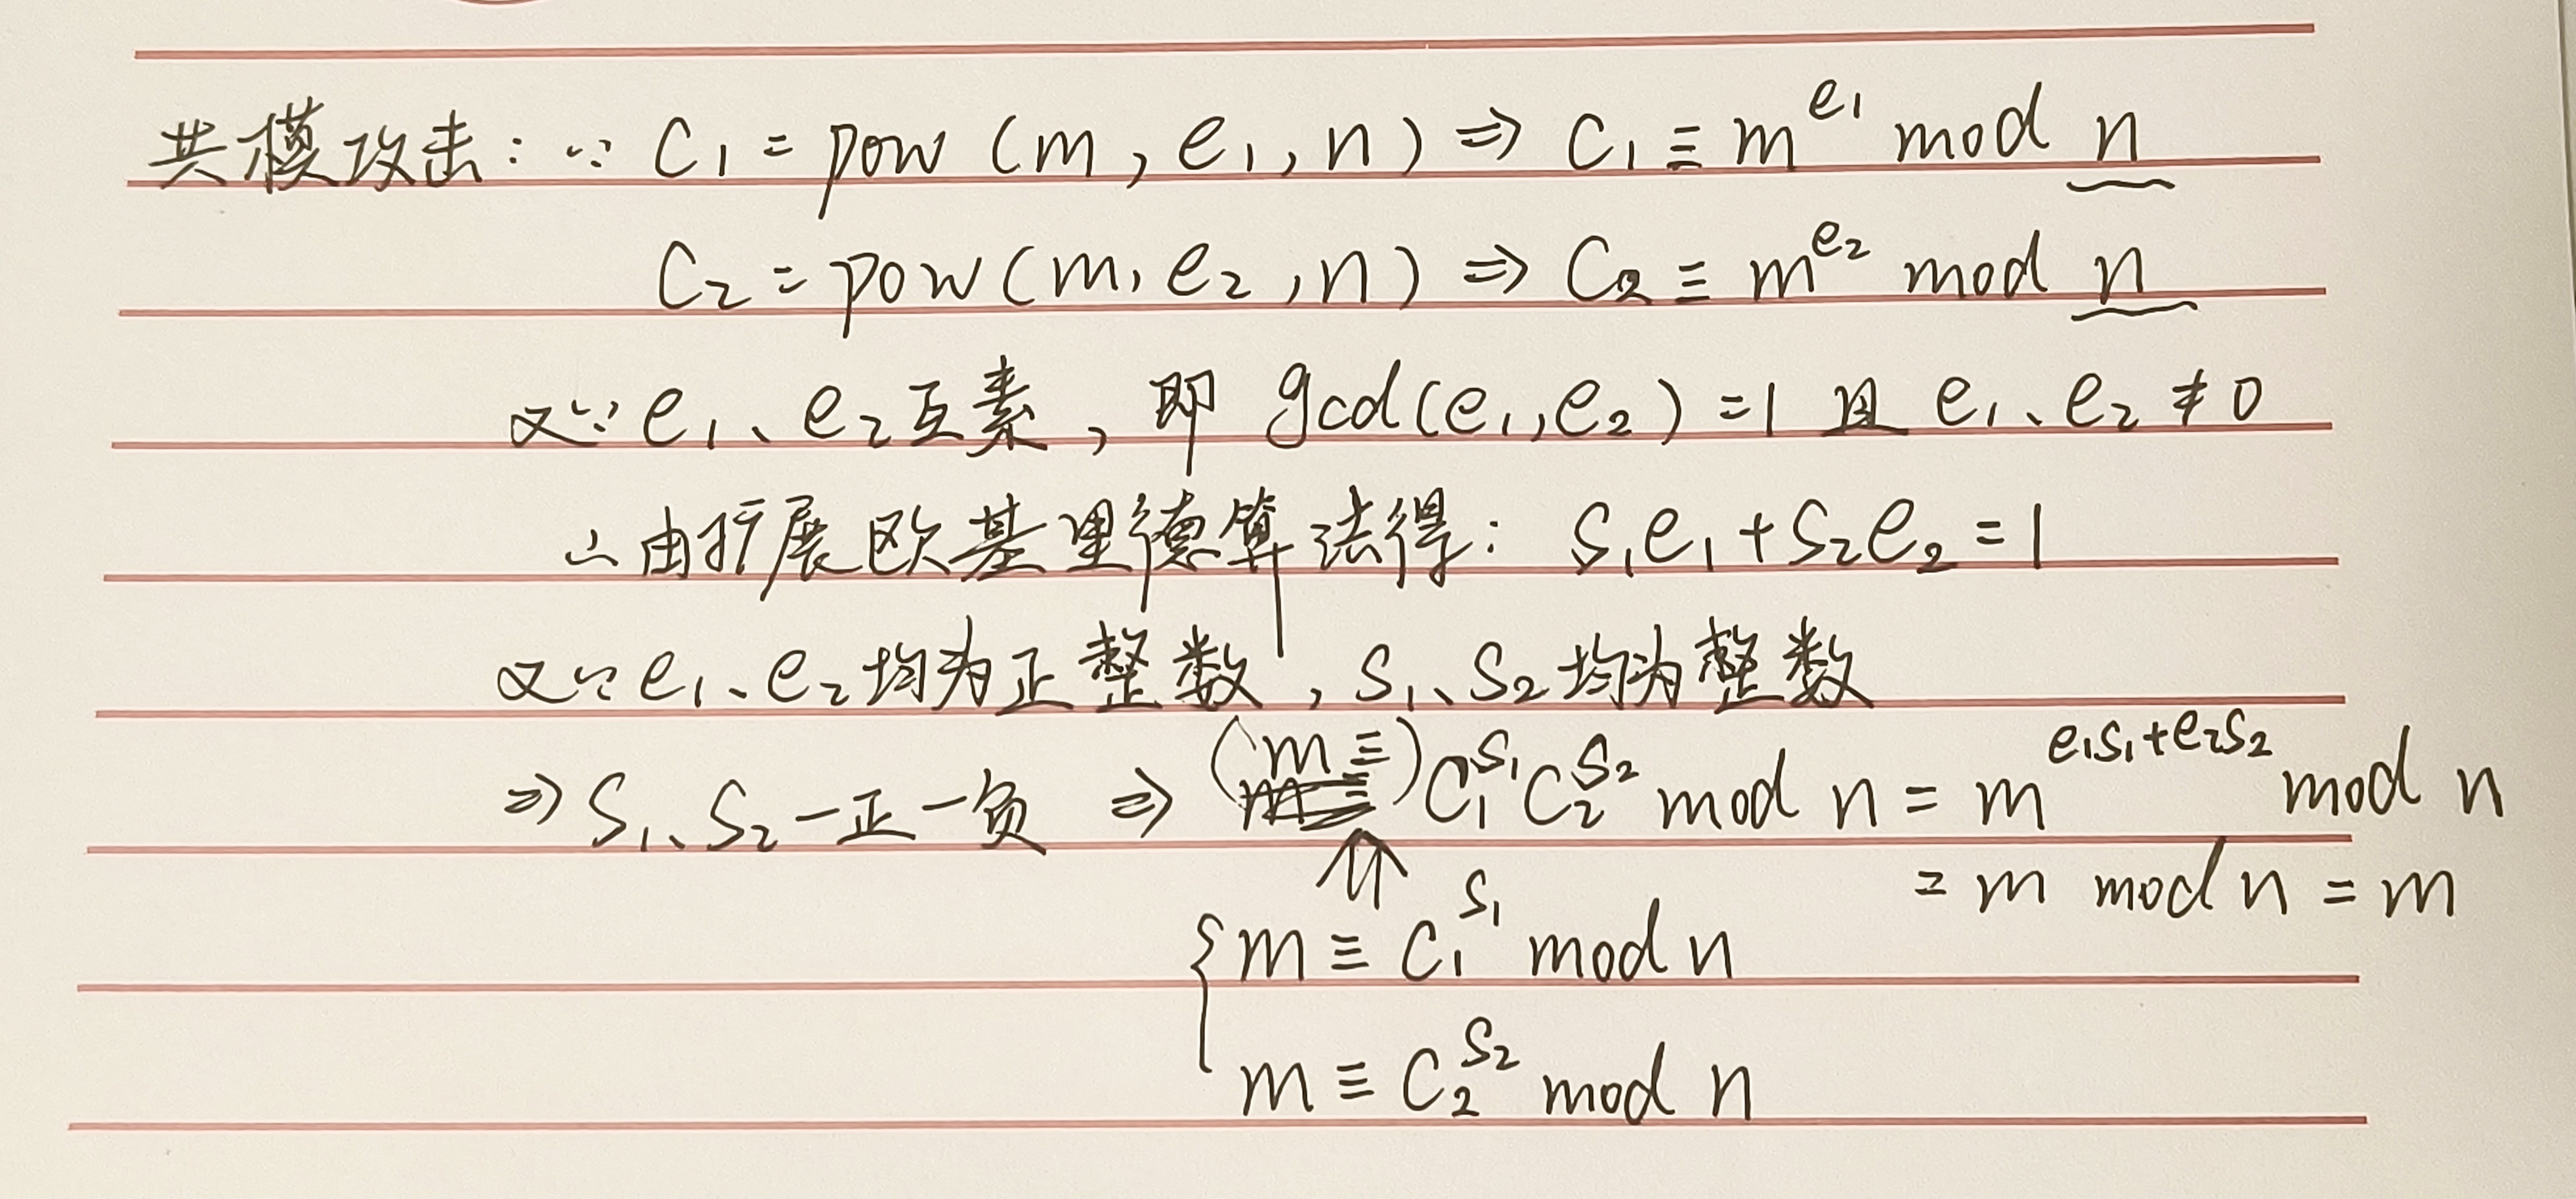 共模攻击：∵ C₁ = pow (m, e₁, n) ⇒ C₁ ≡ m^e₁ mod n
C₂ = pow (m, e₂, n) ⇒ C₂ ≡ m^e₂ mod n
又∵ e₁、e₂互素，即 gcd(e₁,e₂) = 1 且 e₁、e₂ ≠ 0
∴ 由扩展欧基里德算法得： S₁e₁ + S₂e₂ = 1
又∵ e₁、e₂均为正整数，S₁、S₂均为整数
⇒ S₁、S₂一正一负 ⇒ (m ≡) C₁^S₁ C₂^S₂ mod n = m^(e₁s₁+e₂s₂) mod n
= m mod n = m
⇑
{ m ≡ C₁^S₁ mod n
m ≡ C₂^S₂ mod n